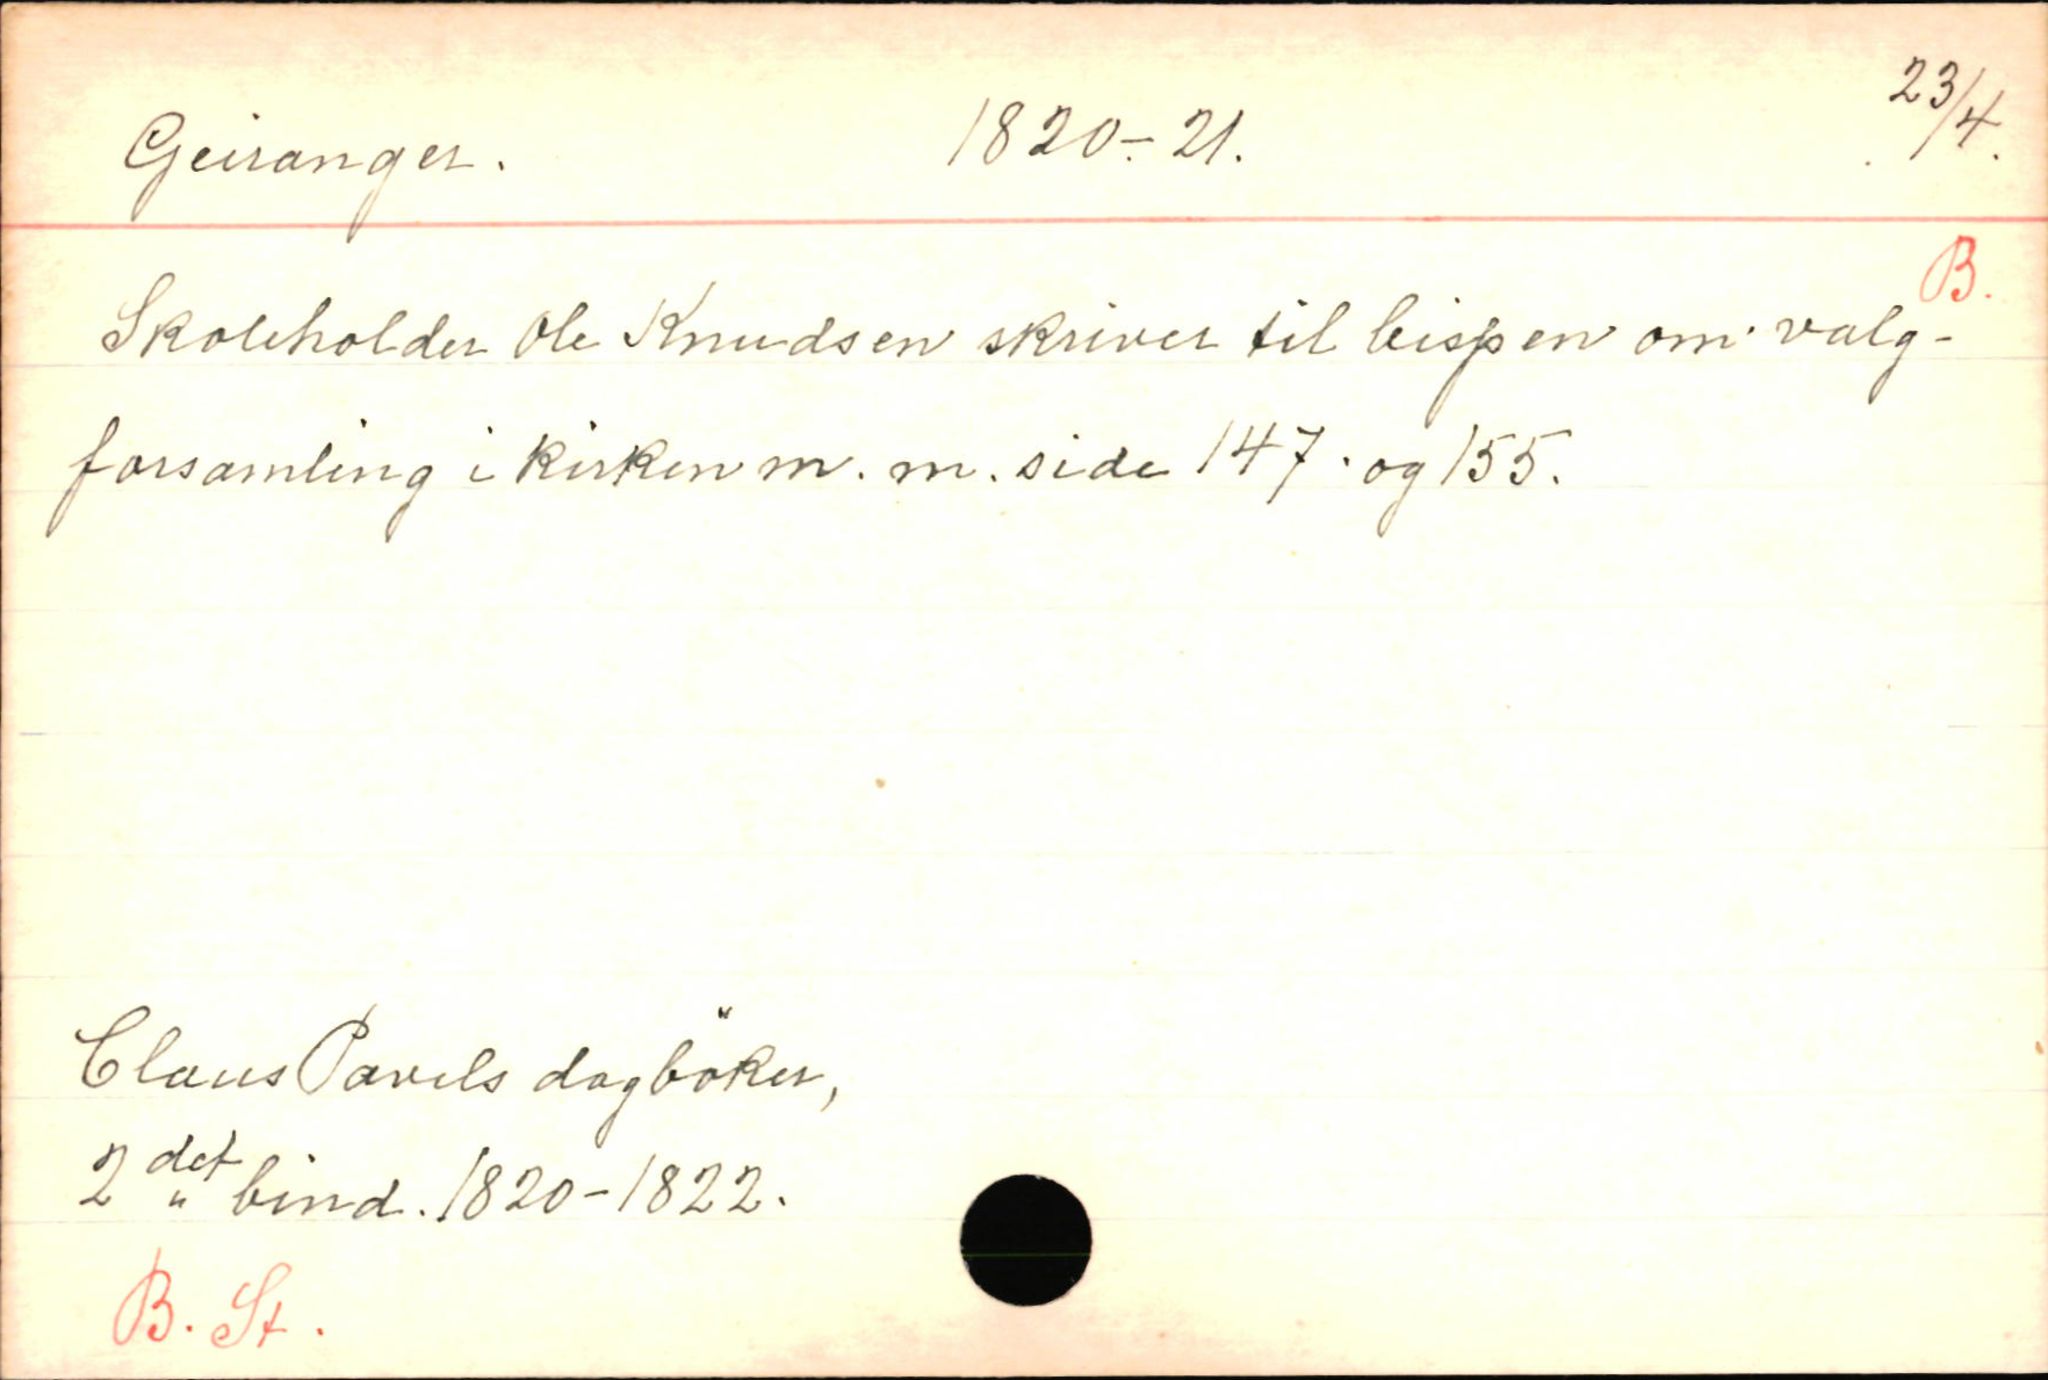 Geiranger. 1820.-21. 23/4.
B.
Skoleholder Ole Knudsen skriver til bispen om valg-
forsamling i kirken m. m. side 147. og 155.
Claus Pavels dagböker,
2det bind. 1820-1822.
B. St.